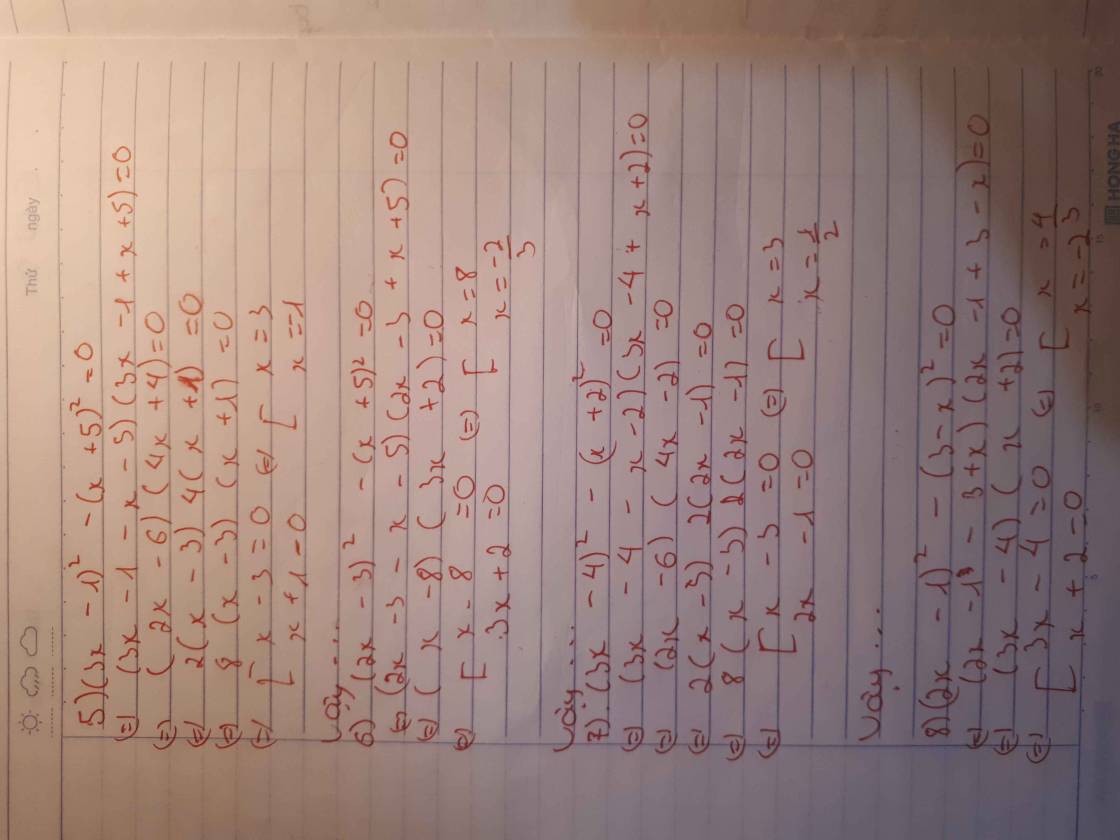 Thứ ngày
5) (3x - 1)² - (x + 5)² = 0
(=) (3x - 1 - x - 5) (3x - 1 + x + 5) = 0
(=) (2x - 6) (4x + 4) = 0
(=) 2(x - 3) 4(x + 1) = 0
(=) 8 (x - 3) (x + 1) = 0
(=) [ x - 3 = 0 (=) [ x = 3
x + 1 = 0 x = -1
Vậy ...
6) (2x - 3)² - (x + 5)² = 0
(=) (2x - 3 - x - 5) (2x - 3 + x + 5) = 0
(=) (x - 8) (3x + 2) = 0
(=) [ x - 8 = 0 (=) [ x = 8
3x + 2 = 0 x = -2/3
Vậy ...
7) (3x - 4)² - (x + 2)² = 0
(=) (3x - 4 - x - 2) (3x - 4 + x + 2) = 0
(=) (2x - 6) (4x - 2) = 0
(=) 2(x - 3) 2(2x - 1) = 0
(=) 8 (x - 3) 2(2x - 1) = 0
(=) [ x - 3 = 0 (=) [ x = 3
2x - 1 = 0 x = 1/2
Vậy ...
8) (2x - 1)² - (3 - x)² = 0
(=) (2x - 1 - 3 + x) (2x - 1 + 3 - x) = 0
(=) (3x - 4) (x + 2) = 0
(=) [ 3x - 4 = 0 (=) [ x = 4/3
x + 2 = 0 x = -2
HONG HA